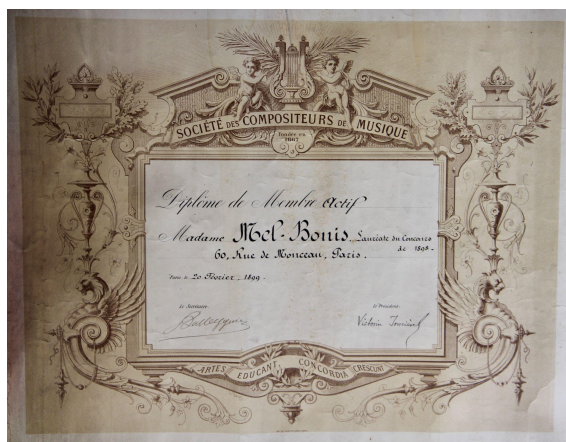 SOCIÉTÉ DES COMPOSITEURS DE MUSIQUE
fondée en
1862
Diplôme de Membre Actif
Madame Mel-Bonis, Lauréate du Concours
de 1898-
60, Rue de Monceau, Paris.
Paris, le 20 Février 1899-
Le Secrétaire
Le Président
Victorin Joncières
ARTES EDUCANT CONCORDIA CRESCUNT